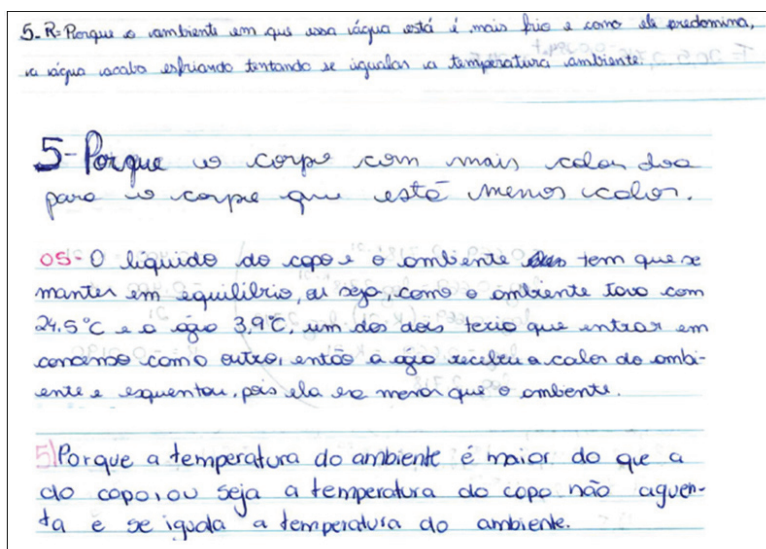 5-R= Porque o ambiente em que essa água está é mais frio e como ele predomina,
a água acaba esfriando tentando se igualar a temperatura ambiente.
5-Porque o corpo com mais calor doa
para o corpo que está menos calor.
05- O líquido do copo e o ambiente tem que se
manter em equilíbrio, ou seja, como o ambiente tava com
24,5°C e a água 3,9°C, um dos dois teria que entrar em
consenso com o outro, então a água recebeu o calor do ambi-
ente e esquentou, pois ela era menor que o ambiente.
5) Porque a temperatura do ambiente é maior do que a
do copo, ou seja a temperatura do copo não aguen-
ta e se iguala a temperatura do ambiente.